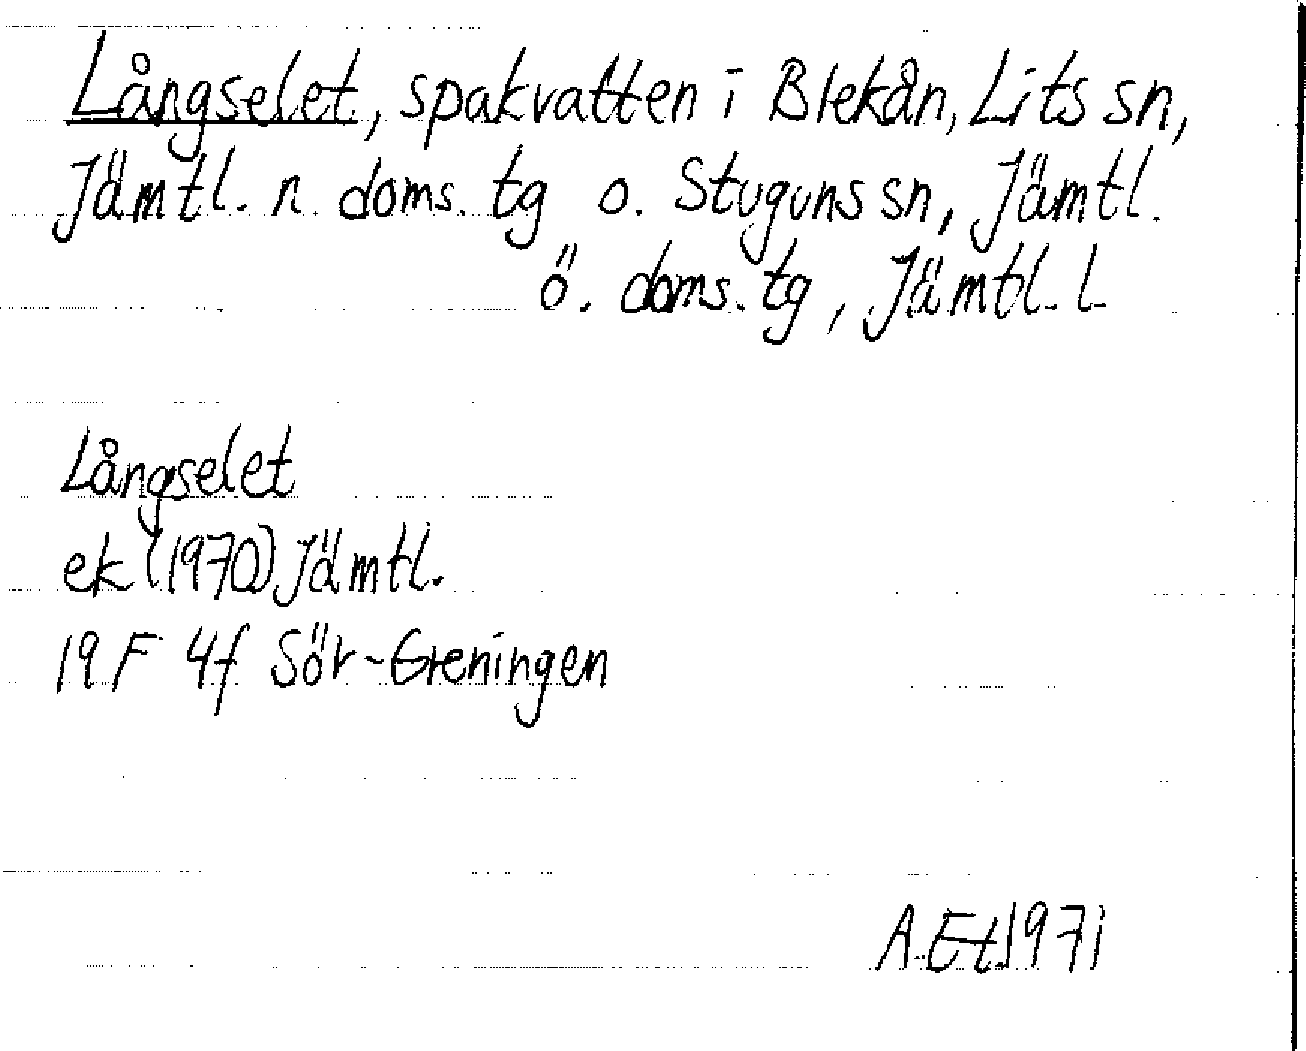 Långselet, spakvatten i Blekån, Lits sn,
Jämtl. n. doms. tg o. Stuguns sn, Jämtl.
ö. doms. tg, Jämtl. l.
Långselet
ek (1970) Jämtl.
19 F 4f Sör-Greningen
A. Et. 1971